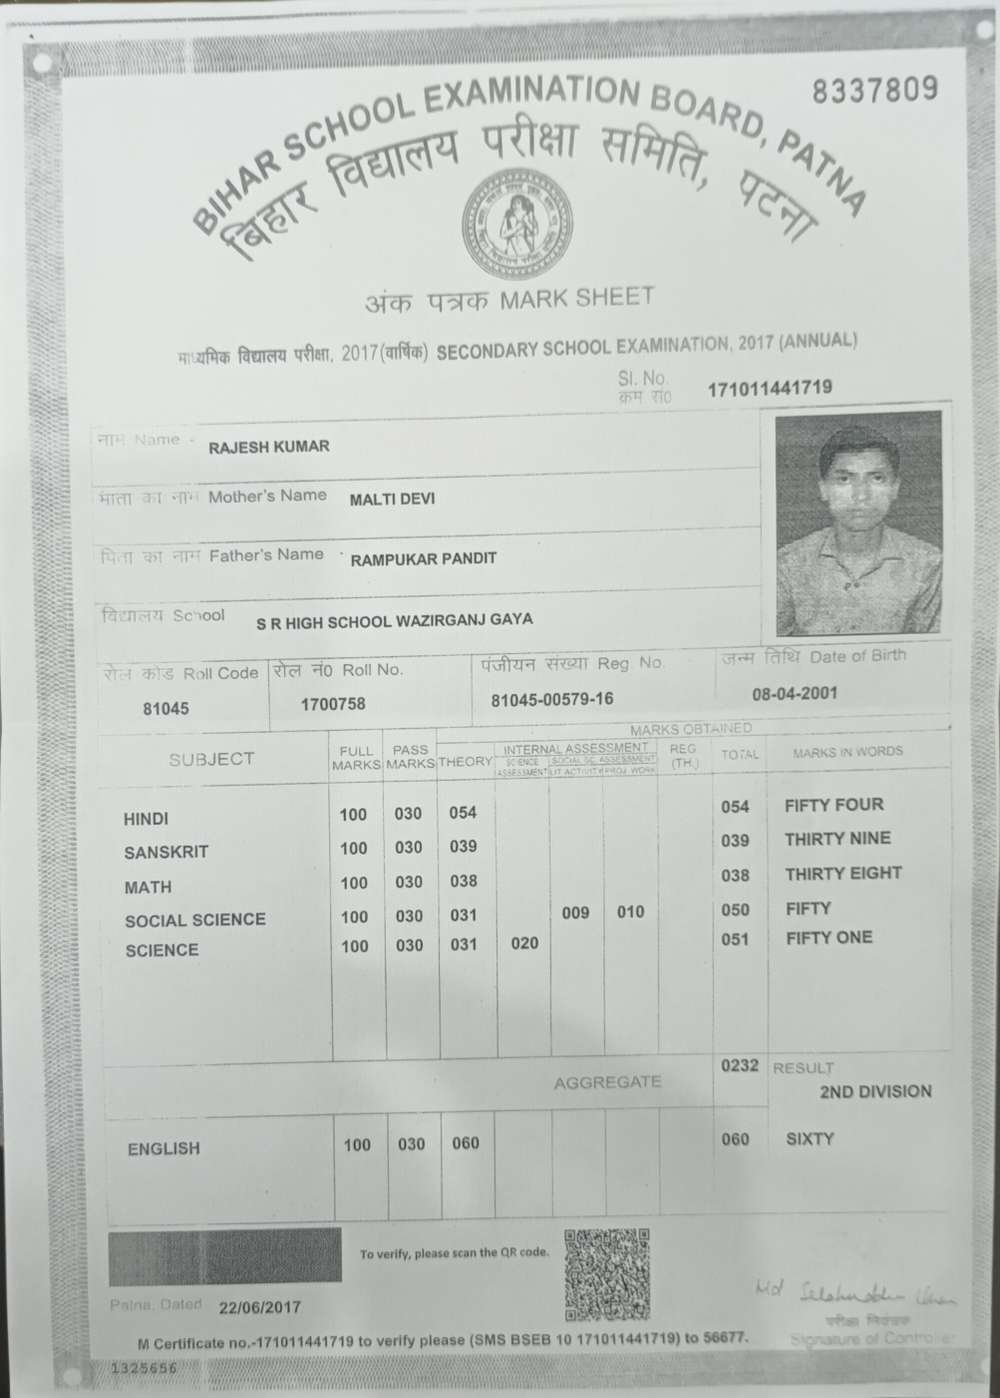 8337809
BIHAR SCHOOL EXAMINATION BOARD, PATNA
बिहार विद्यालय परीक्षा समिति, पटना
अंक पत्रक MARK SHEET
माध्यमिक विद्यालय परीक्षा, 2017(वार्षिक) SECONDARY SCHOOL EXAMINATION, 2017 (ANNUAL)
Sl. No.
क्रम सं0 171011441719
नाम Name - RAJESH KUMAR
माता का नाम Mother's Name MALTI DEVI
पिता का नाम Father's Name RAMPUKAR PANDIT
विद्यालय School S R HIGH SCHOOL WAZIRGANJ GAYA
रोल कोड Roll Code रोल नं0 Roll No. पंजीयन संख्या Reg No. जन्म तिथि Date of Birth
81045 1700758 81045-00579-16 08-04-2001
MARKS OBTAINED
SUBJECT FULL MARKS PASS MARKS THEORY INTERNAL ASSESSMENT REG (TH.) TOTAL MARKS IN WORDS
SCIENCE ASSESSMENT SOCIAL SC. ASSESSMENT
LIT ACTIVITY PROJ. WORK
HINDI 100 030 054 054 FIFTY FOUR
SANSKRIT 100 030 039 039 THIRTY NINE
MATH 100 030 038 038 THIRTY EIGHT
SOCIAL SCIENCE 100 030 031 009 010 050 FIFTY
SCIENCE 100 030 031 020 051 FIFTY ONE
AGGREGATE 0232 RESULT
2ND DIVISION
ENGLISH 100 030 060 060 SIXTY
To verify, please scan the QR code.
Patna, Dated 22/06/2017
परीक्षा नियंत्रक
Signature of Controller
M Certificate no.-171011441719 to verify please (SMS BSEB 10 171011441719) to 56677.
1325656